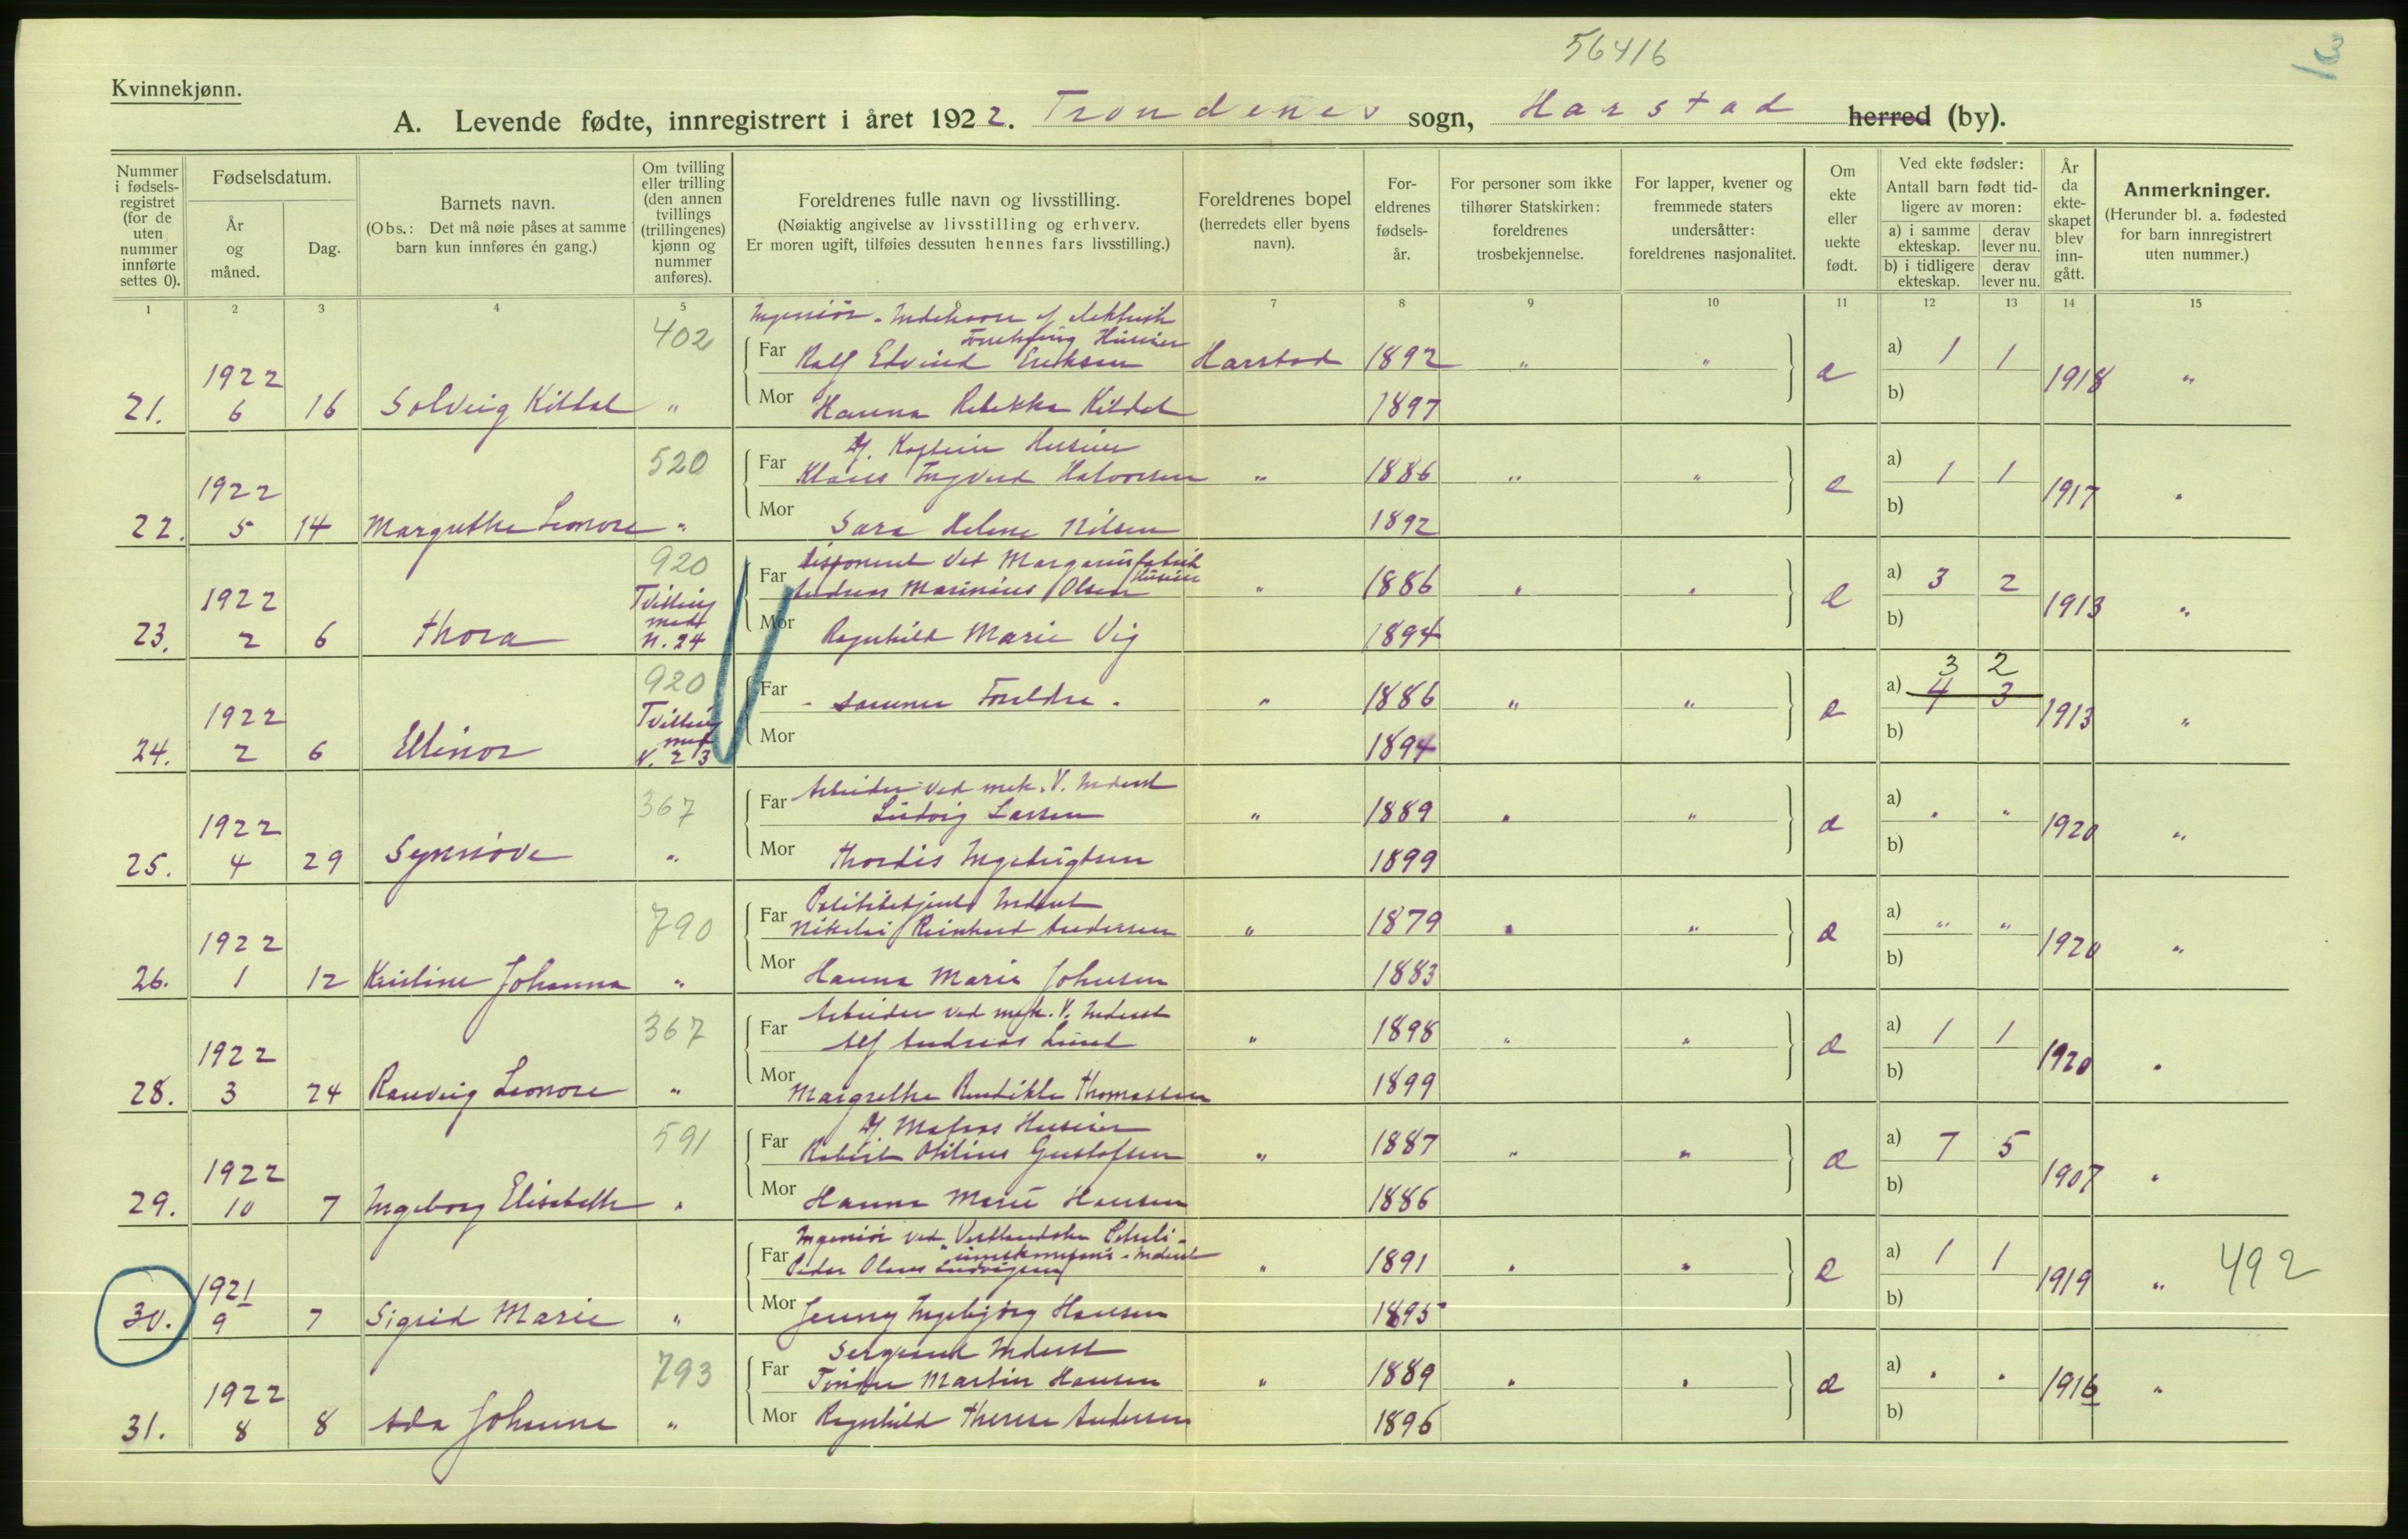 56416
3
Kvinnekjønn.
A. Levende fødte, innregistrert i året 1922. Trondenes sogn, Harstad herred (by).
Nummer i fødselsregistret (for de uten nummer innførte settes 0).
Fødselsdatum.
År og måned.
Dag.
Barnets navn.
(Obs.: Det må nøie påses at samme barn kun innføres én gang.)
Om tvilling eller trilling (den annen tvillings (trillingenes) kjønn og nummer anføres).
Foreldrenes fulle navn og livsstilling.
(Nøiaktig angivelse av livsstilling og erhverv.
Er moren ugift, tilføies dessuten hennes fars livsstilling.)
Foreldrenes bopel (herredets eller byens navn).
Foreldrenes fødselsår.
For personer som ikke tilhører Statskirken: foreldrenes trosbekjennelse.
For lapper, kvener og fremmede staters undersåtter: foreldrenes nasjonalitet.
Om ekte eller uekte født.
Ved ekte fødsler:
Antall barn født tidligere av moren:
a) i samme ekteskap. derav lever nu.
b) i tidligere ekteskap. derav lever nu.
År da ekteskapet blev inngått.
Anmerkninger.
(Herunder bl. a. fødested for barn innregistrert uten nummer.)
1 2 3 4 5 7 8 9 10 11 12 13 14 15
402 Ingeniør
21. 1922 6 16 Solveig Kildal "
Far Ralf Edvind Eriksen Harstad 1892 " " e a) 1 1 1918 "
Mor Hanna Rebekka Kildal 1897 b)
520 Huseier
22. 1922 5 14 Margrethe Leonore "
Far Halvorsen " 1886 " " e a) 1 1 1917 "
Mor Sara Helene Nilsen 1892 b)
920 Disponent ved Margarinfabrik Huseier
23. 1922 2 6 Thora Tvilling med N. 24
Far Andreas Marinius Olsen " 1886 " " e a) 3 2 1913 "
Mor Ragnhild Marie Vig 1894 b)
920
24. 1922 2 6 Ellinor Tvilling med N. 23
Far - samme Foreldre - " 1886 " " e a) 3 2 4 3 1913 "
Mor 1894 b)
367 Arbeider ved mek. V. Inderst
25. 1922 4 29 Synnöve "
Far Ludvig Larsen " 1889 " " e a) " " 1920 "
Mor Thordis Ingebrigtsen 1899 b)
790 Politibetjent Inderst
26. 1922 1 12 Kristine Johanna "
Far Nikolai Reinhard Andersen " 1879 " " e a) " " 1920 "
Mor Hanna Marie Johnsen 1883 b)
367 Arbeider ved mek. V. Inderst
28. 1922 3 24 Ranveig Leonore "
Far Alf Andreas Lund " 1898 " " e a) 1 1 1920 "
Mor Margrethe Bendikte Thomassen 1899 b)
591 Huseier
29. 1922 10 7 Ingeborg Elisabeth "
Far Robert Otilius Gustafsen " 1887 " " e a) 7 5 1907 "
Mor Hanna Marie Hansen 1886 b)
Ingeniør ved Vestlandske Petroleumskompani - Inderst
30. 1921 9 7 Sigrid Marie "
Far Peder Olaus Ludvigsen " 1891 " " e a) 1 1 1919 " 492
Mor Jenny Ingebjørg Hansen 1895 b)
793 Sergeant Inderst
31. 1922 8 8 Ada Johanne "
Far Martin Hansen " 1889 " " e a) " " 1916 "
Mor Ragnhild Therese Andersen 1896 b)